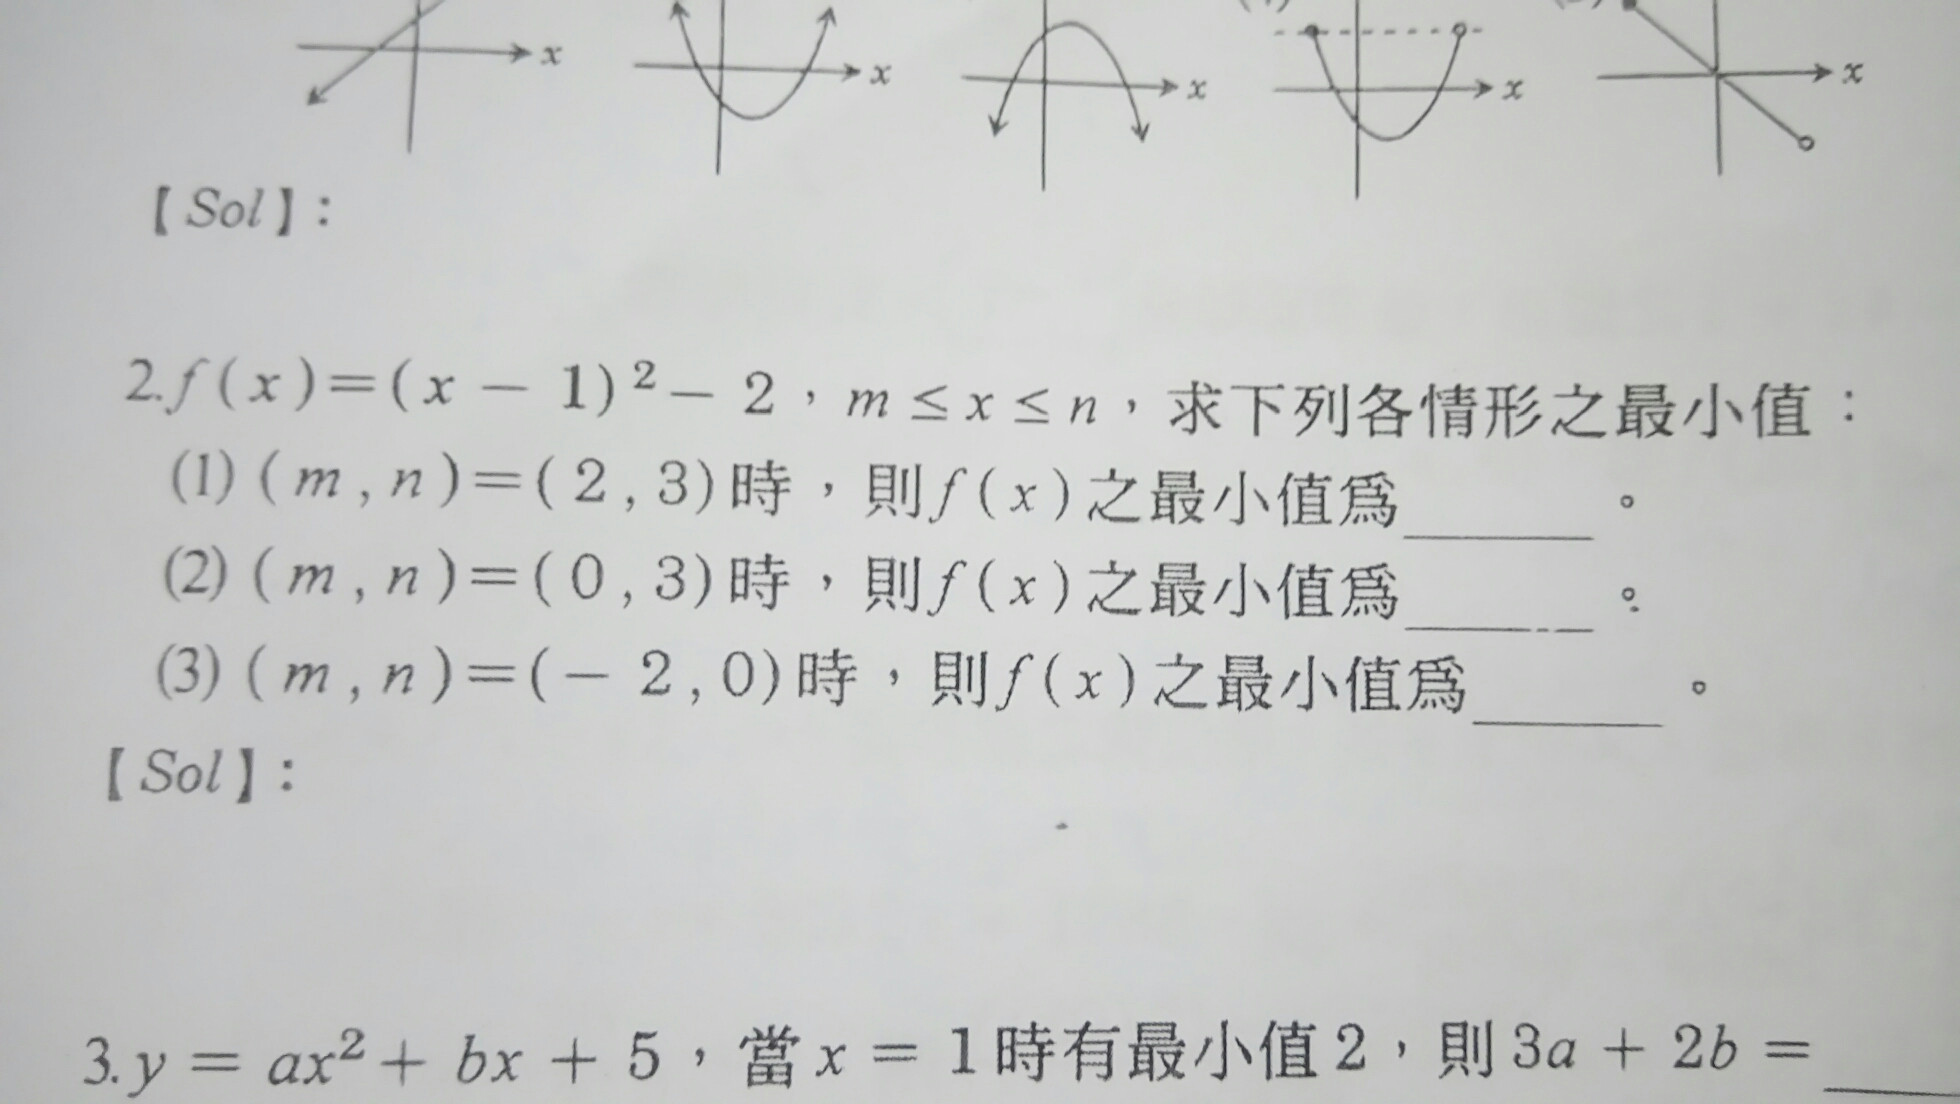 x x x x x
【Sol】:
2.f(x)=(x－1)²－2，m≤x≤n，求下列各情形之最小值：
(1)(m,n)=(2,3)時，則f(x)之最小值爲______。
(2)(m,n)=(0,3)時，則f(x)之最小值爲______。
(3)(m,n)=(－2,0)時，則f(x)之最小值爲______。
【Sol】:
3.y = ax² + bx + 5，當x = 1時有最小值2，則3a + 2b = ____